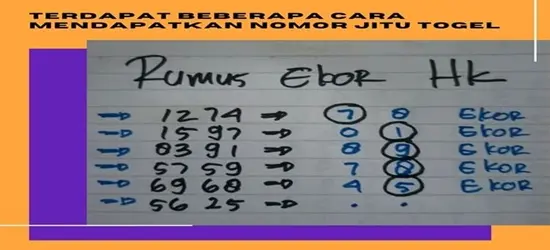 TERDAPAT BEBERAPA CARA
MENDAPATKAN NOMOR JITU TOGEL
Rumus Ekor HK
→ 1274 → 7 0 EKOR
→ 1597 → 0 1 EKOR
→ 0391 → 0 9 EKOR
→ 5759 → 7 0 EKOR
→ 6960 → 4 5 EKOR
→ 5625 → . .